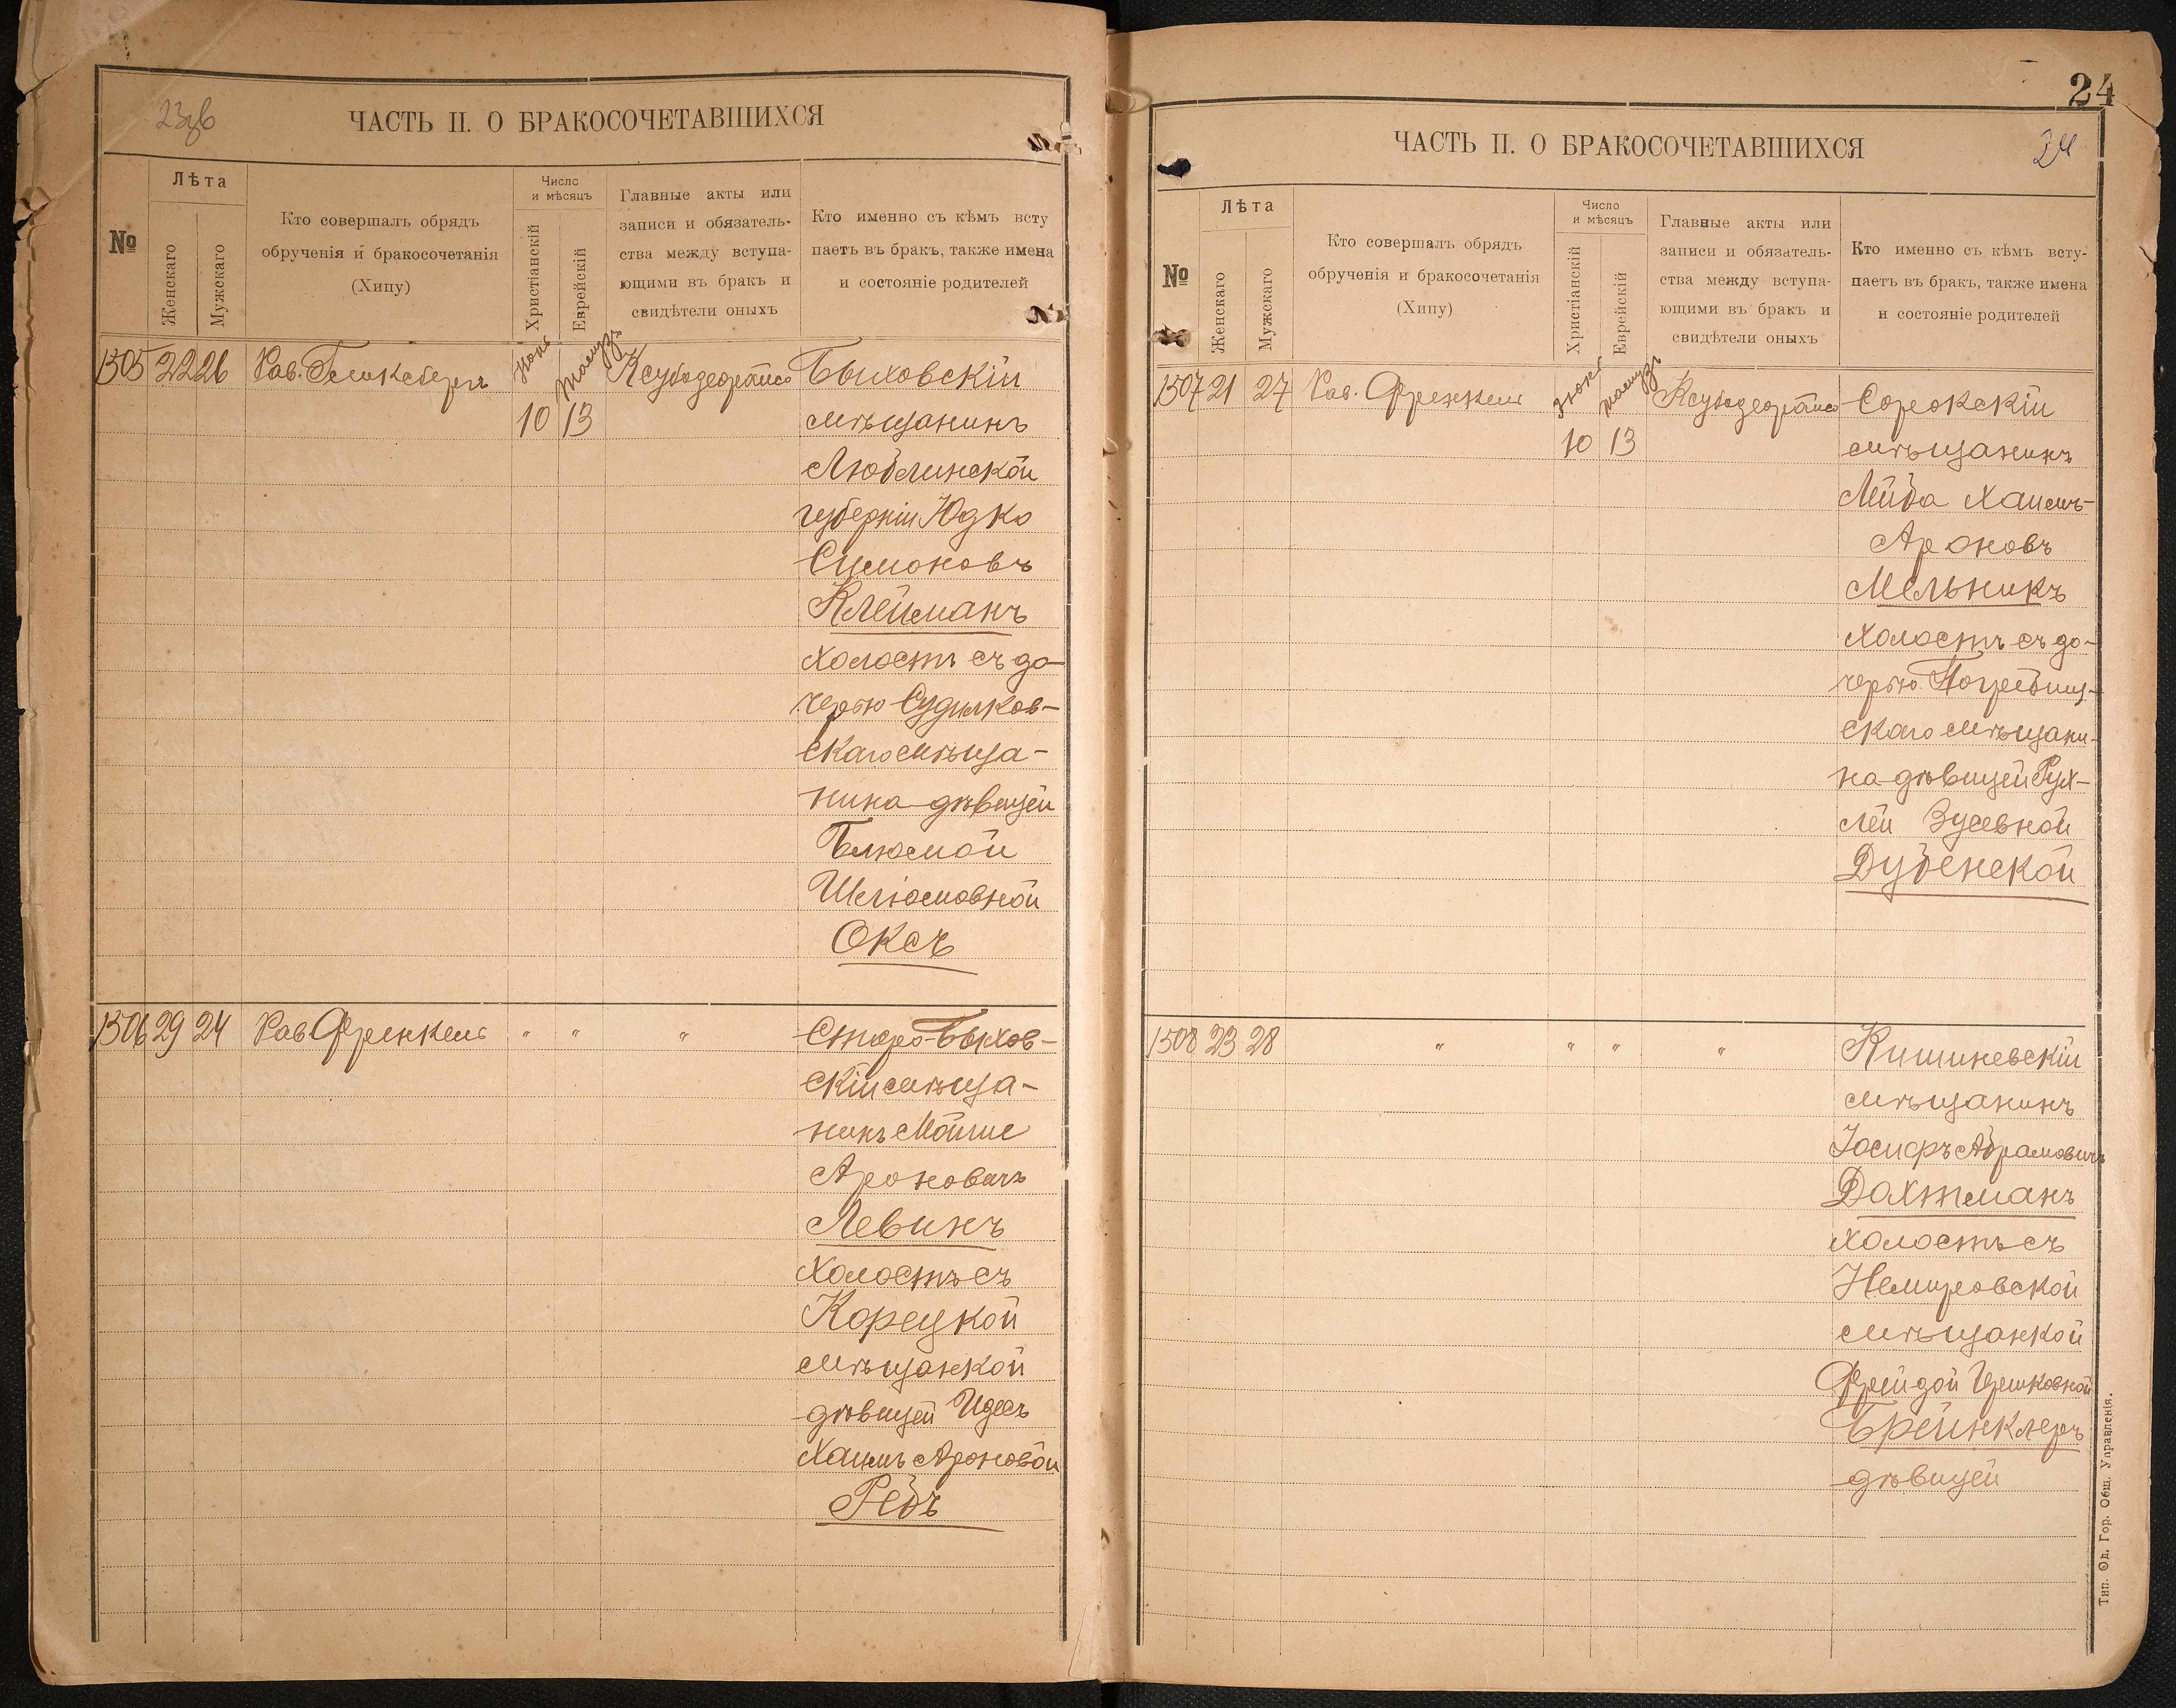 23об
ЧАСТЬ II. О БРАКОСОЧЕТАВШИХСЯ
№
Лѣта
Женскаго
Мужскаго
Кто совершалъ обрядъ
обрученія и бракосочетанія
(Хипу)
Число
и мѣсяцъ
Христіанскій
Еврейскій
Главные акты или
записи и обязатель-
ства между вступа-
ющими въ бракъ и
свидѣтели оныхъ
Кто именно съ кѣмъ всту
паетъ въ бракъ, также имена
и состояніе родителей
1305 22 26 Рав. Іюнь Таммузъ Быховскій
10 13 мѣщанинъ
Люблинской
губерніи Юдко
Симоновъ
Клейманъ
холостъ съ до-
черью Судилков-
скаго мѣща-
нина дѣвицей
Блюмой
Шліомовной
Оксъ
1306 29 24 Рав. Френкель " " " Старо-Быхов-
скій мѣща-
нинъ Мойше
Ароновичъ
Левинъ
холостъ съ
Корецкой
мѣщанкой
дѣвицей Идесъ
Хаимъ Ароновой
Редъ
24
ЧАСТЬ II. О БРАКОСОЧЕТАВШИХСЯ
24
№
Лѣта
Женскаго
Мужскаго
Кто совершалъ обрядъ
обрученія и бракосочетанія
(Хипу)
Число
и мѣсяцъ
Христіанскій
Еврейскій
Главные акты или
записи и обязатель-
ства между вступа-
ющими въ бракъ и
свидѣтели оныхъ
Кто именно съ кѣмъ всту-
паетъ въ бракъ, также имена
и состояніе родителей
1307 21 27 Рав. Френкель Іюнь Таммузъ Сорокскій
10 13 мѣщанинъ
Лейба Хаимъ-
Ароновъ
Мельникъ
холостъ съ до-
черью Погребищ-
скаго мѣщани-
на дѣвицей Рух-
лей Зусевной
Дубенской
1308 23 28 " " " " Кишиневскій
мѣщанинъ
Іосифъ Абрамовичъ
Дахтманъ
холостъ съ
Немировской
мѣщанкой
Фрейдой Гершковной
Брейнклеръ
дѣвицей
Тип. Од. Гор. Общ. Управленія.